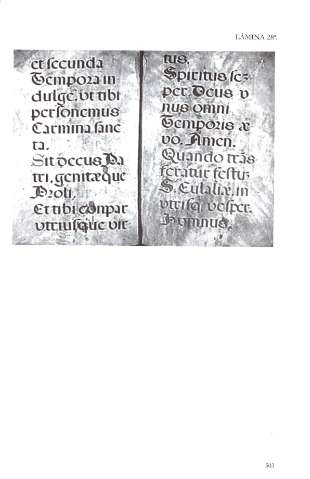 LÁMINA 28ª.
et secunda
Tempora in
dulgẽ. vt tibi
personemus
Carmina sanc
ta.
Sit decus Pa
tri, genitæque
Proli,
Et tibi conpar
vtriusque vir
tus.
Spiritus se=
per. Deus v
nus omni
Temporis æ
vo. Amen.
Quando trãs
feratur festũ
S. Eulaliæ, in
vtrisq; vesper.
Hymnus.